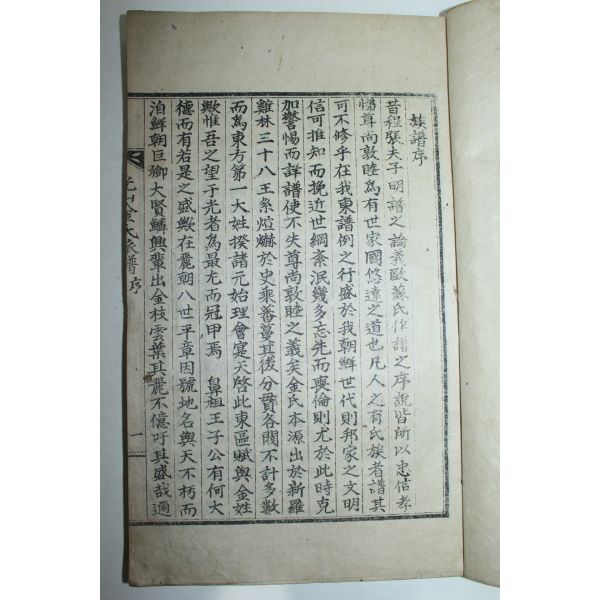 族譜序
昔程張夫子明譜之論義歐蘇氏作譜之序說皆所以忠信孝
悌尊尚敦睦爲有世家國悠遠之道也凡人之有氏族者譜其
可不修乎在我東譜例之行盛於我朝鮮世代則邦家之文明
信可推知而挽近世綱紊泯幾多忘先而喪倫則尤於此時克
加警惕而詳譜使不失尊尚敦睦之義矣金氏本源出於新羅
雞林三十八王系煊爀於史乘蕃蔓其後分貫各閥不計多數
而爲東方第一大姓揆諸元始理會寔天啓此東區賦與金姓
歟惟吾之望于光者爲最尤而冠甲焉 鼻祖王子公有何大
德而有若是之盛歟在麗朝八世平章因號地名與天不朽而
洎鮮朝巨卿大賢鱗興輩出金枝雲葉其麗不億吁其盛哉迺
光山金氏族譜 序
一